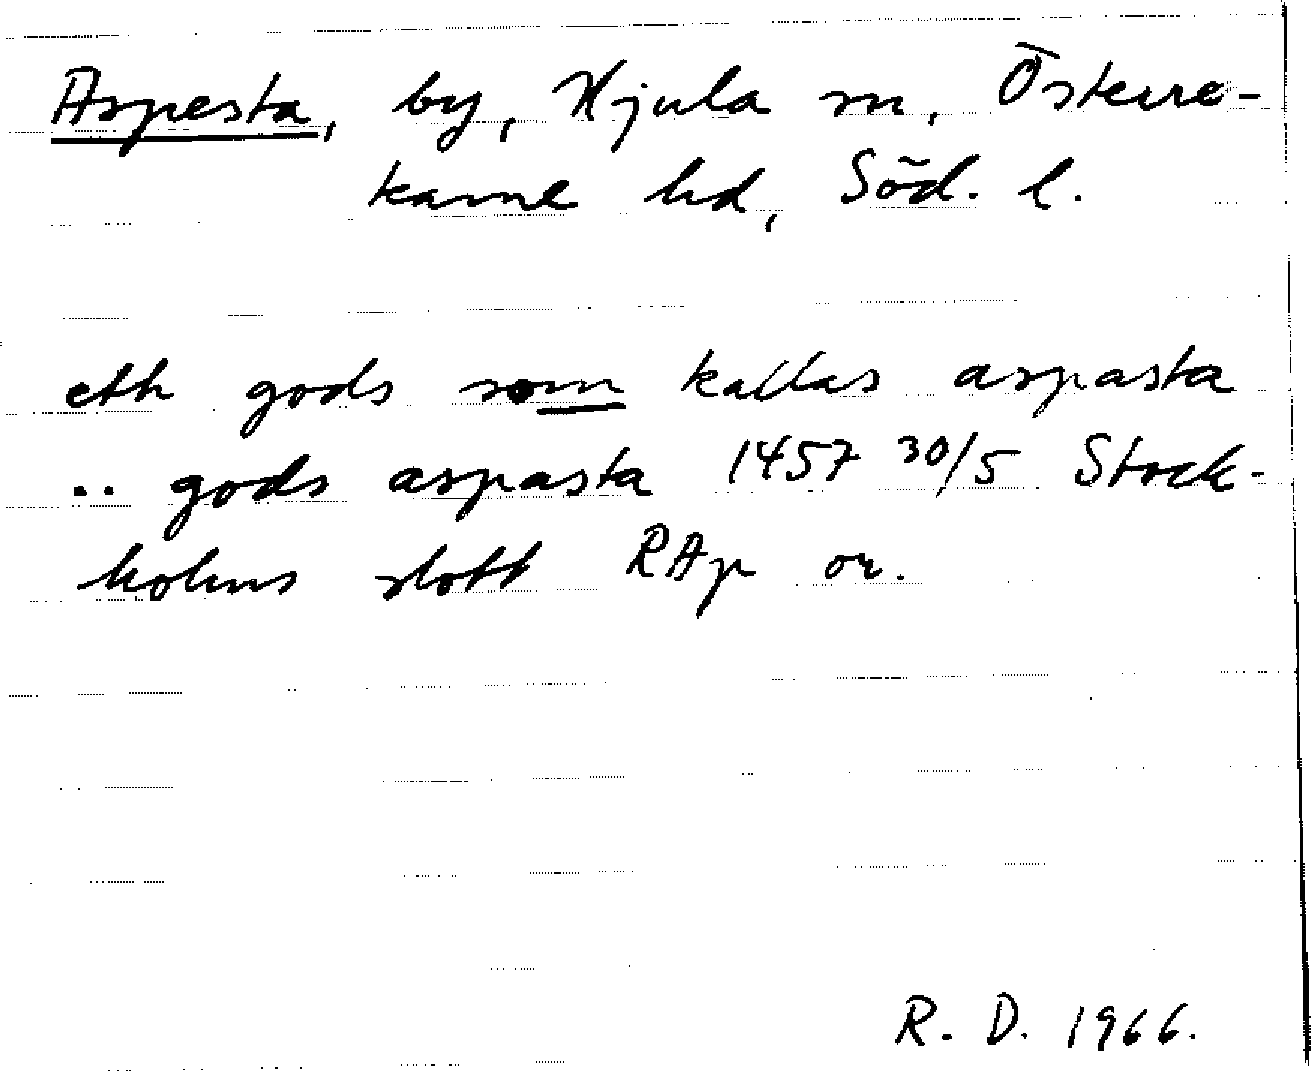 Aspesta, by, Hjula sn, Österre-
karne hd, Söd. l.
eth gods som kallas aspasta
.. gods aspasta 1457 30/5 Stock-
holms slott RAp or.
R. D. 1966.